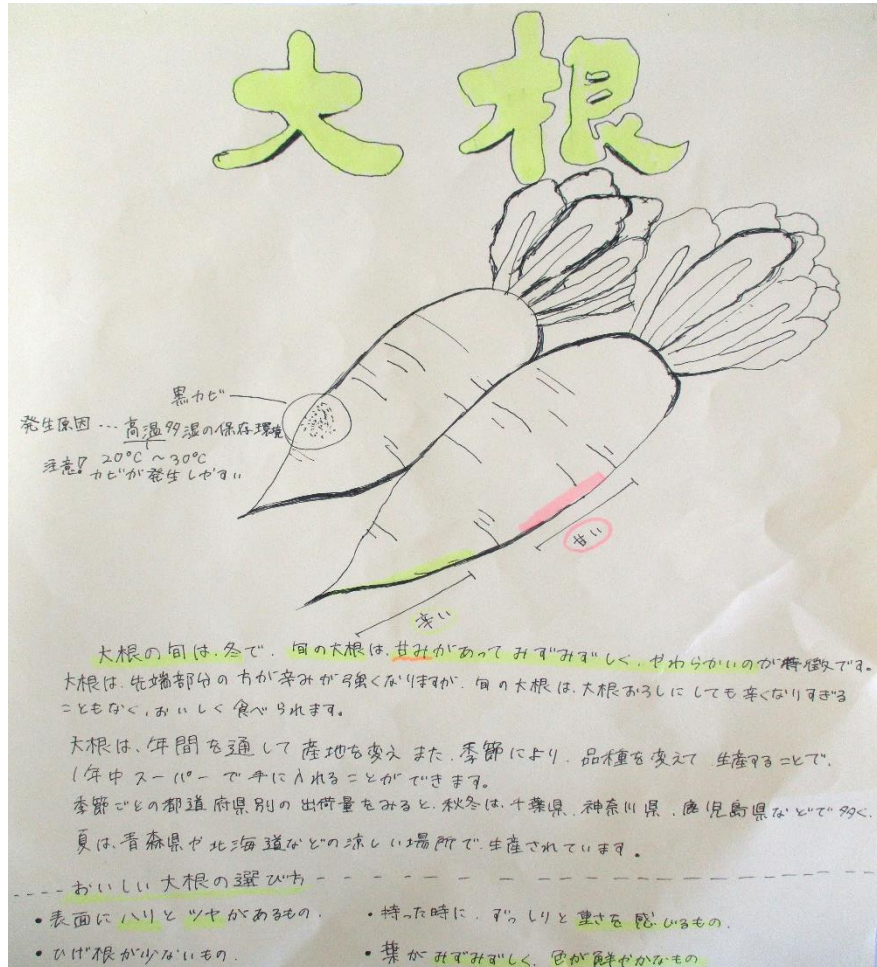 大根
黒カビ
発生原因…高温多湿の保存環境
注意! 20℃～30℃
カビが発生しやすい
甘い
辛い
大根の旬は、冬で、旬の大根は、甘みがあってみずみずしく、やわらかいのが特徴です。
大根は、先端部分の方が辛みが強くなりますが、旬の大根は、大根おろしにしても辛くなりすぎる
こともなく、おいしく食べられます。
大根は、年間を通して産地を変え また、季節により、品種を変えて 生産することで、
1年中スーパーで手に入れることができます。
季節ごとの都道府県別の出荷量をみると、秋冬は、千葉県、神奈川県、鹿児島県などで多く、
夏は、青森県や北海道などの涼しい場所で、生産されています。
おいしい大根の選び方
・表面にハリとツヤがあるもの。
・持った時に、ずっしりと重さを感じるもの。
・ひげ根が少ないもの。
・葉がみずみずしく、色が鮮やかなもの